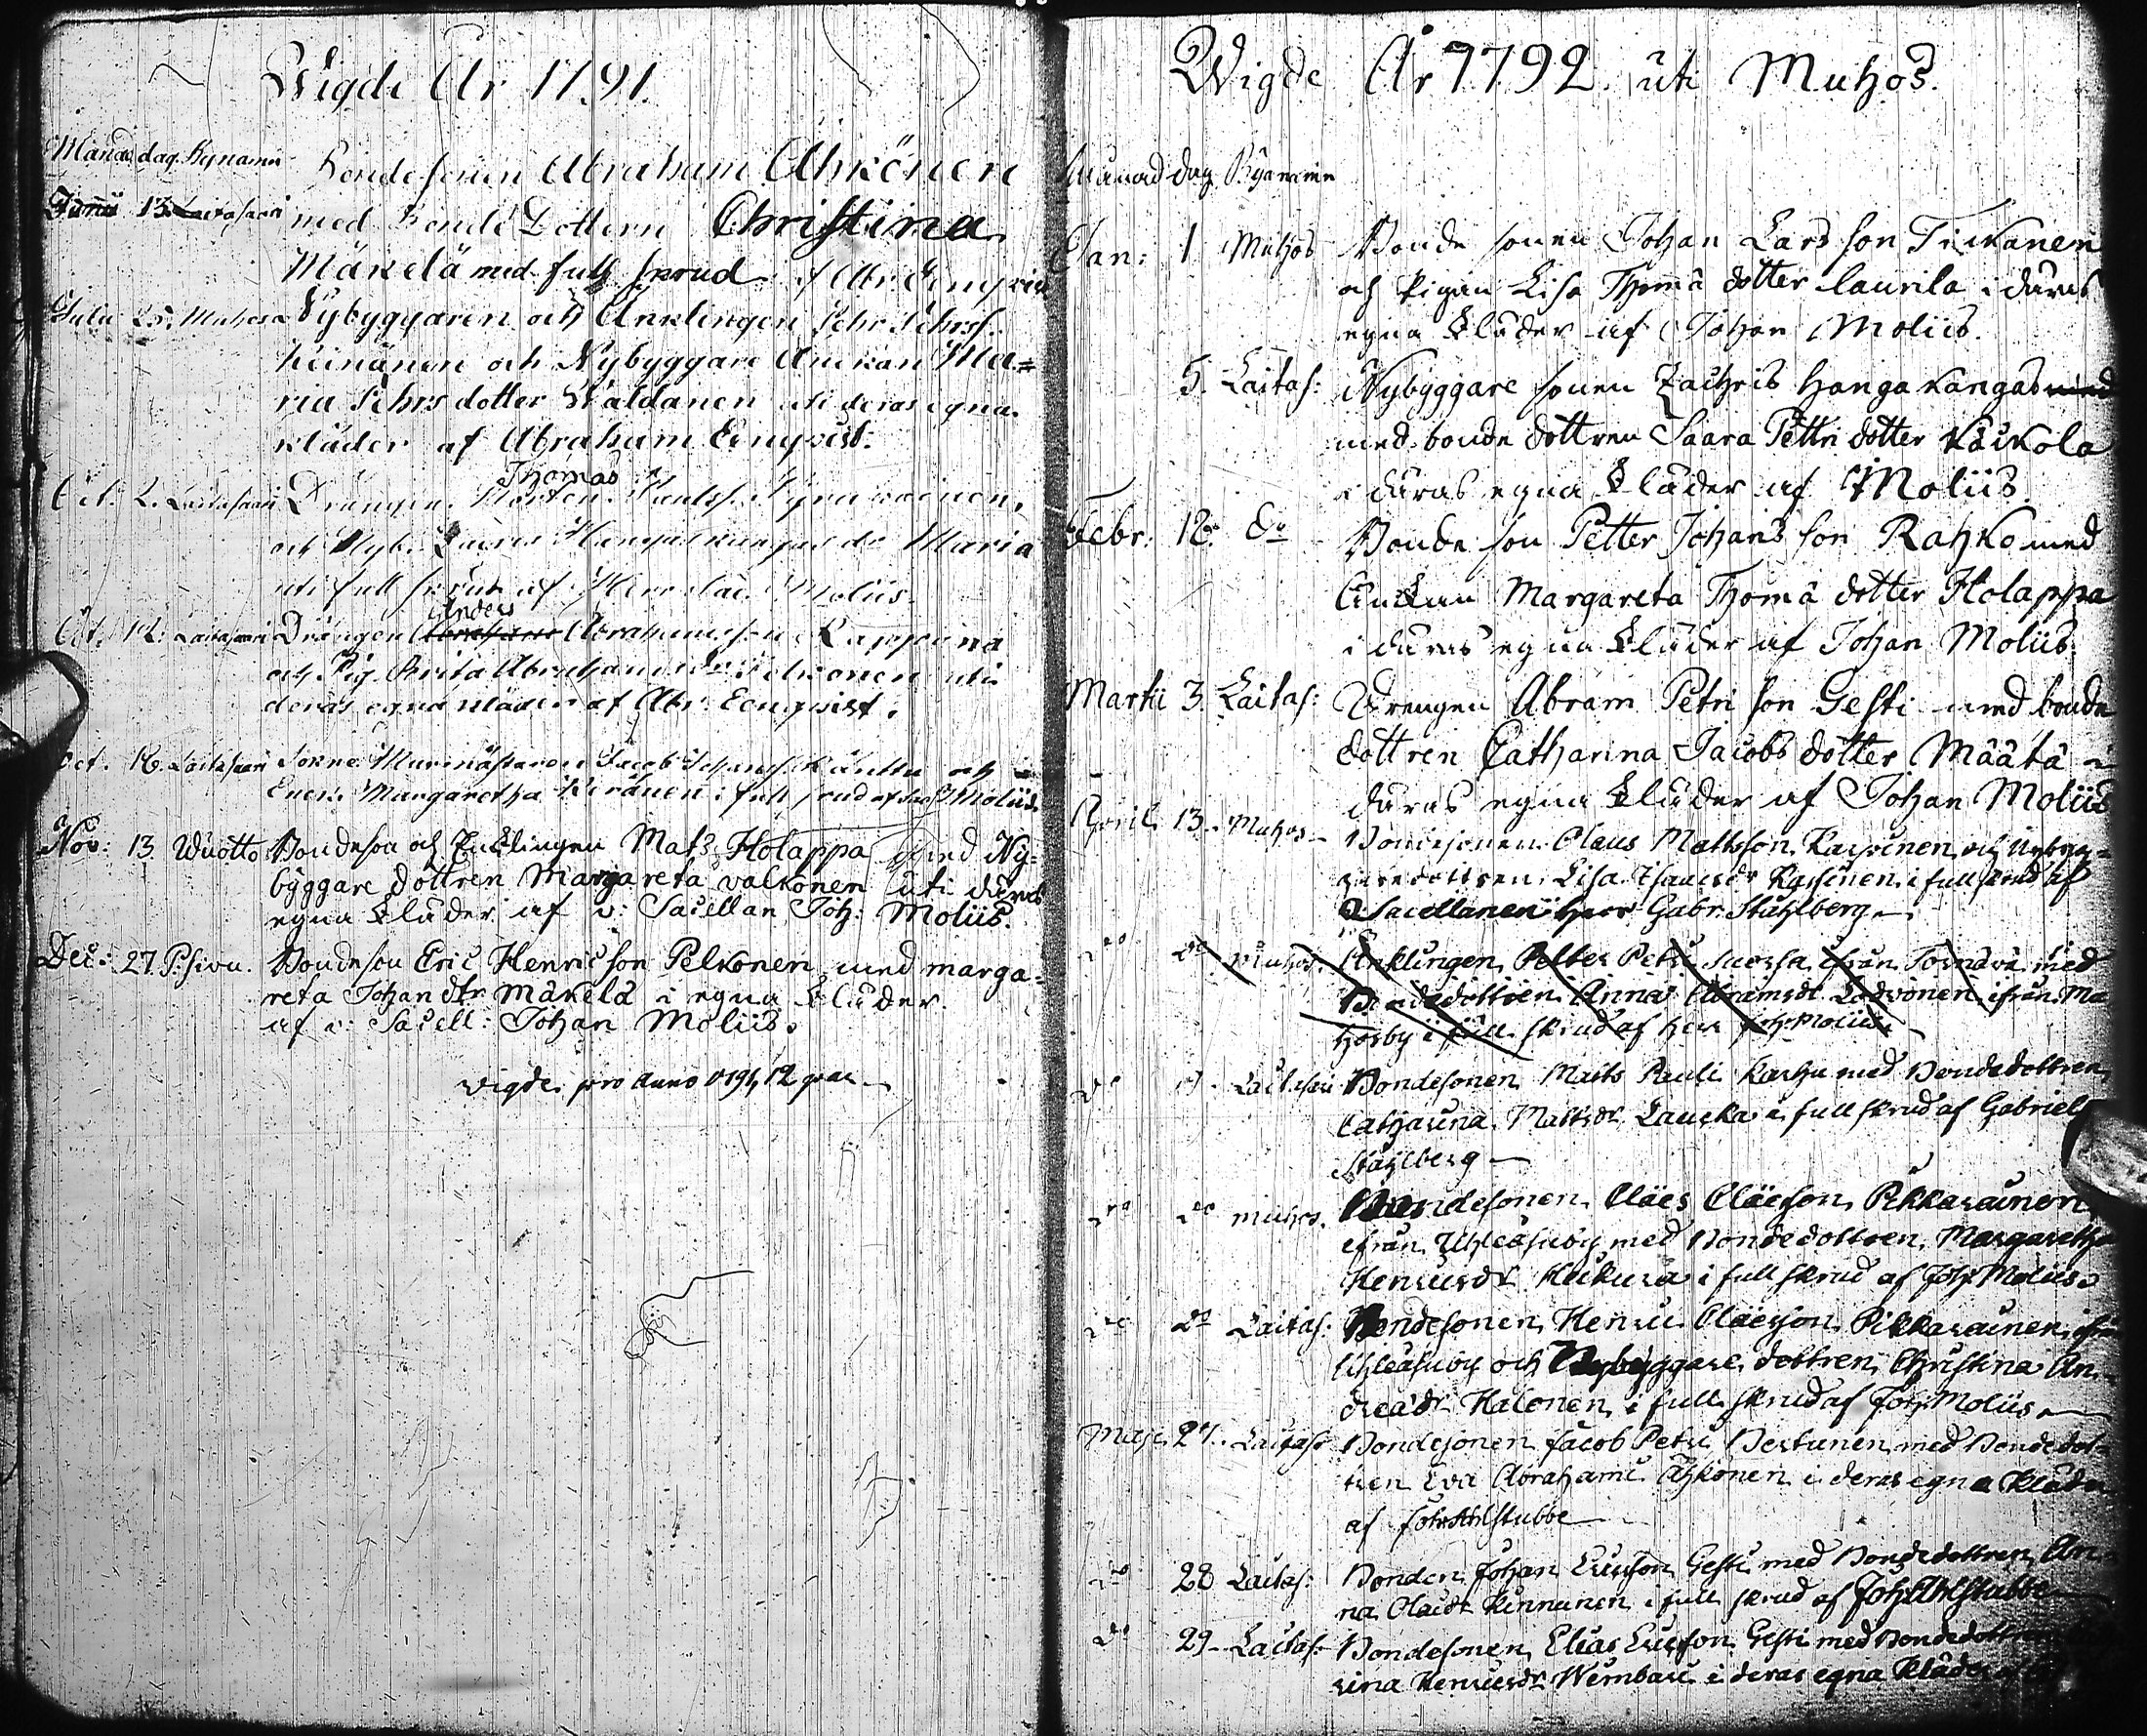 Wigde År 1791.
Månad dag. Bynamn
Bondesonen Abraham Ahkönen
Junii 13. Laitasaari med Bonde Dottern Christina
Mäkelä med full skrud af Abr: Enqvist
Julii Muhos Nybyggaren och Anklingen Sehrs
Keinänen och Nybyggare Änckan Ma=
ria dotter uti deras egna
kläder af Abraham Enqvist.
Thomas
Oct. 2. Laitasaari Drängen Mårten Paulss.
och Nyb. Maria
uti full skrud af Molius.
Anders
Oct. 12. Laitasaari Drängen Abraham Abrahamsson Kappina
och Pig. Brita Abrahamsdr Pelkonen uti
deras egna kläder af Abr: Eenqvist.
Oct. 16. Laitasaari Sokne Jacob och
Enck. Margaretha Keränen i full skrud af Molius.
Nov: 13. Wuotto Bondeson och Encklingen Mats Holappa med Ny=
byggare dottren Margareta valkonen uti deras
egna kläder af v: Sacellan Joh: Molius.
Dec: 27. P:sivu. Bondeson Eric Henricson Pelkonen med marga=
reta Johan dtr Mäkelä i egna kläder
af v: Sacell: Johan Molius.
vigde pro anno 1791, 12 par
Wigde År 1792. uti Muhos.
Månad dag Bynamn
Jan: 1 Muhos Bonde sonen Johan Lars son Tickanen
och Pigan Lisa Thoma dotter laurila i deras
egna kläder af Johan Molius.
5. Laitas: Nybyggare sonen Zachris Hangakangas med
med bonde dottren Saara Pettri dotter Käckölä
i deras egna kläder af Molius.
Febr: 12. do Bonde son Petter Johans son Rahko med
Enckan Margareta Thoma dotter Holappa
i deras egna kläder af Johan Molius.
Martii 3. Laitas: Drengen Abram Petri son Gesti med bonde
dottren Catharina Jacobs dotter Määtä i
deras egna kläder af Johan Molius
April 13. Muhos Bondesonen Olaus Mattsson Karhinen och Nybyg=
garedottren Lisa Isaacsdr Karhinen i full skrud af
Sacellanen herr Gabr. Ståhlberg
do do Muhos. Enklingen Petter Petri Suorsa ifrån Tornävä med
Bondedottren Anna Abramsdr Ladvonen ifrån Mu
hosby i full skrud af herr Joh: Molius.
do Laitasari Bondesonen Matts Pauli Karhu med Bondedottren
Catharina Mattsdr Laucka i full skrud af Gabriel
Ståhlberg
do do muhos. Bondesonen Claës Claëson Pikkarainen
ifrån Uhleåsuby med Bondedottren Margaretha
Henricsdr Huikura i full skrud af Joh: Molius.
do do Laitas: Bondesonen Henric Claësson Pikkarainen ifrån
Uhleåsuby och Nybyggare dottren Christina An=
dreädr Halonen i full skrud af Joh: Molius
Maji 27. Laitas: Bondesonen Jacob Petri Vestunen med Bondedot=
tren Eva Abrahami Ahkonen i deras egna kläder
af Joh: Ahlstubbe
do 28 Laitas: Bonden Johan Ericson Gesti med Bondedottren An=
na Olaidr Kinnunen i full skrud af Joh: Ahlstubbe
do 29. Laitas: Bondesonen Elias Ericson Gesti med Bondedottren
rina Henricsdr Wernbari i deras egna kläder